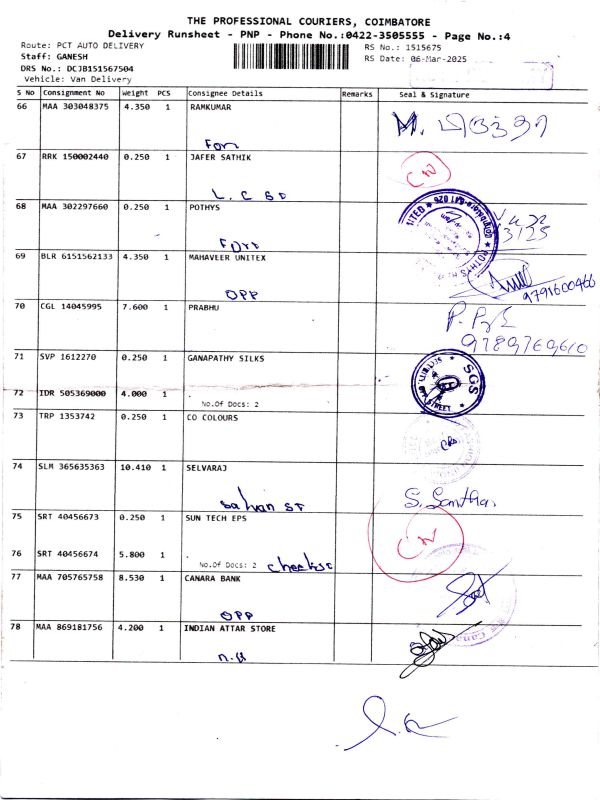 THE PROFESSIONAL COURIERS, COIMBATORE
Delivery Runsheet - PNP - Phone No.:0422-3505555 - Page No.:4
Route: PCT AUTO DELIVERY RS No.: 1515675
Staff: GANESH RS Date: 06-Mar-2025
DRS No.: DCJB151567504
Vehicle: Van Delivery
S No Consignment No Weight PCS Consignee Details Remarks Seal & Signature
66 MAA 303048375 4.350 1 RAMKUMAR
M.
67 RRK 150002440 0.250 1 JAFER SATHIK
CN
L. C St
68 MAA 302297660 0.250 1 POTHYS
69 BLR 6151562133 4.350 1 MAHAVEER UNITEX
OPP 9791600466
70 CGL 14045995 7.600 1 PRABHU
9789769610
71 SVP 1612270 0.250 1 GANAPATHY SILKS
SGS
STREET
72 IDR 505369000 4.000 1
No.Of Docs: 2
73 TRP 1353742 0.250 1 CO COLOURS
74 SLM 365635363 10.410 1 SELVARAJ
S. Santhan
75 SRT 40456673 0.250 1 SUN TECH EPS
CN
76 SRT 40456674 5.800 1
No.Of Docs: 2
77 MAA 705765758 8.530 1 CANARA BANK
OPP
78 MAA 869181756 4.200 1 INDIAN ATTAR STORE